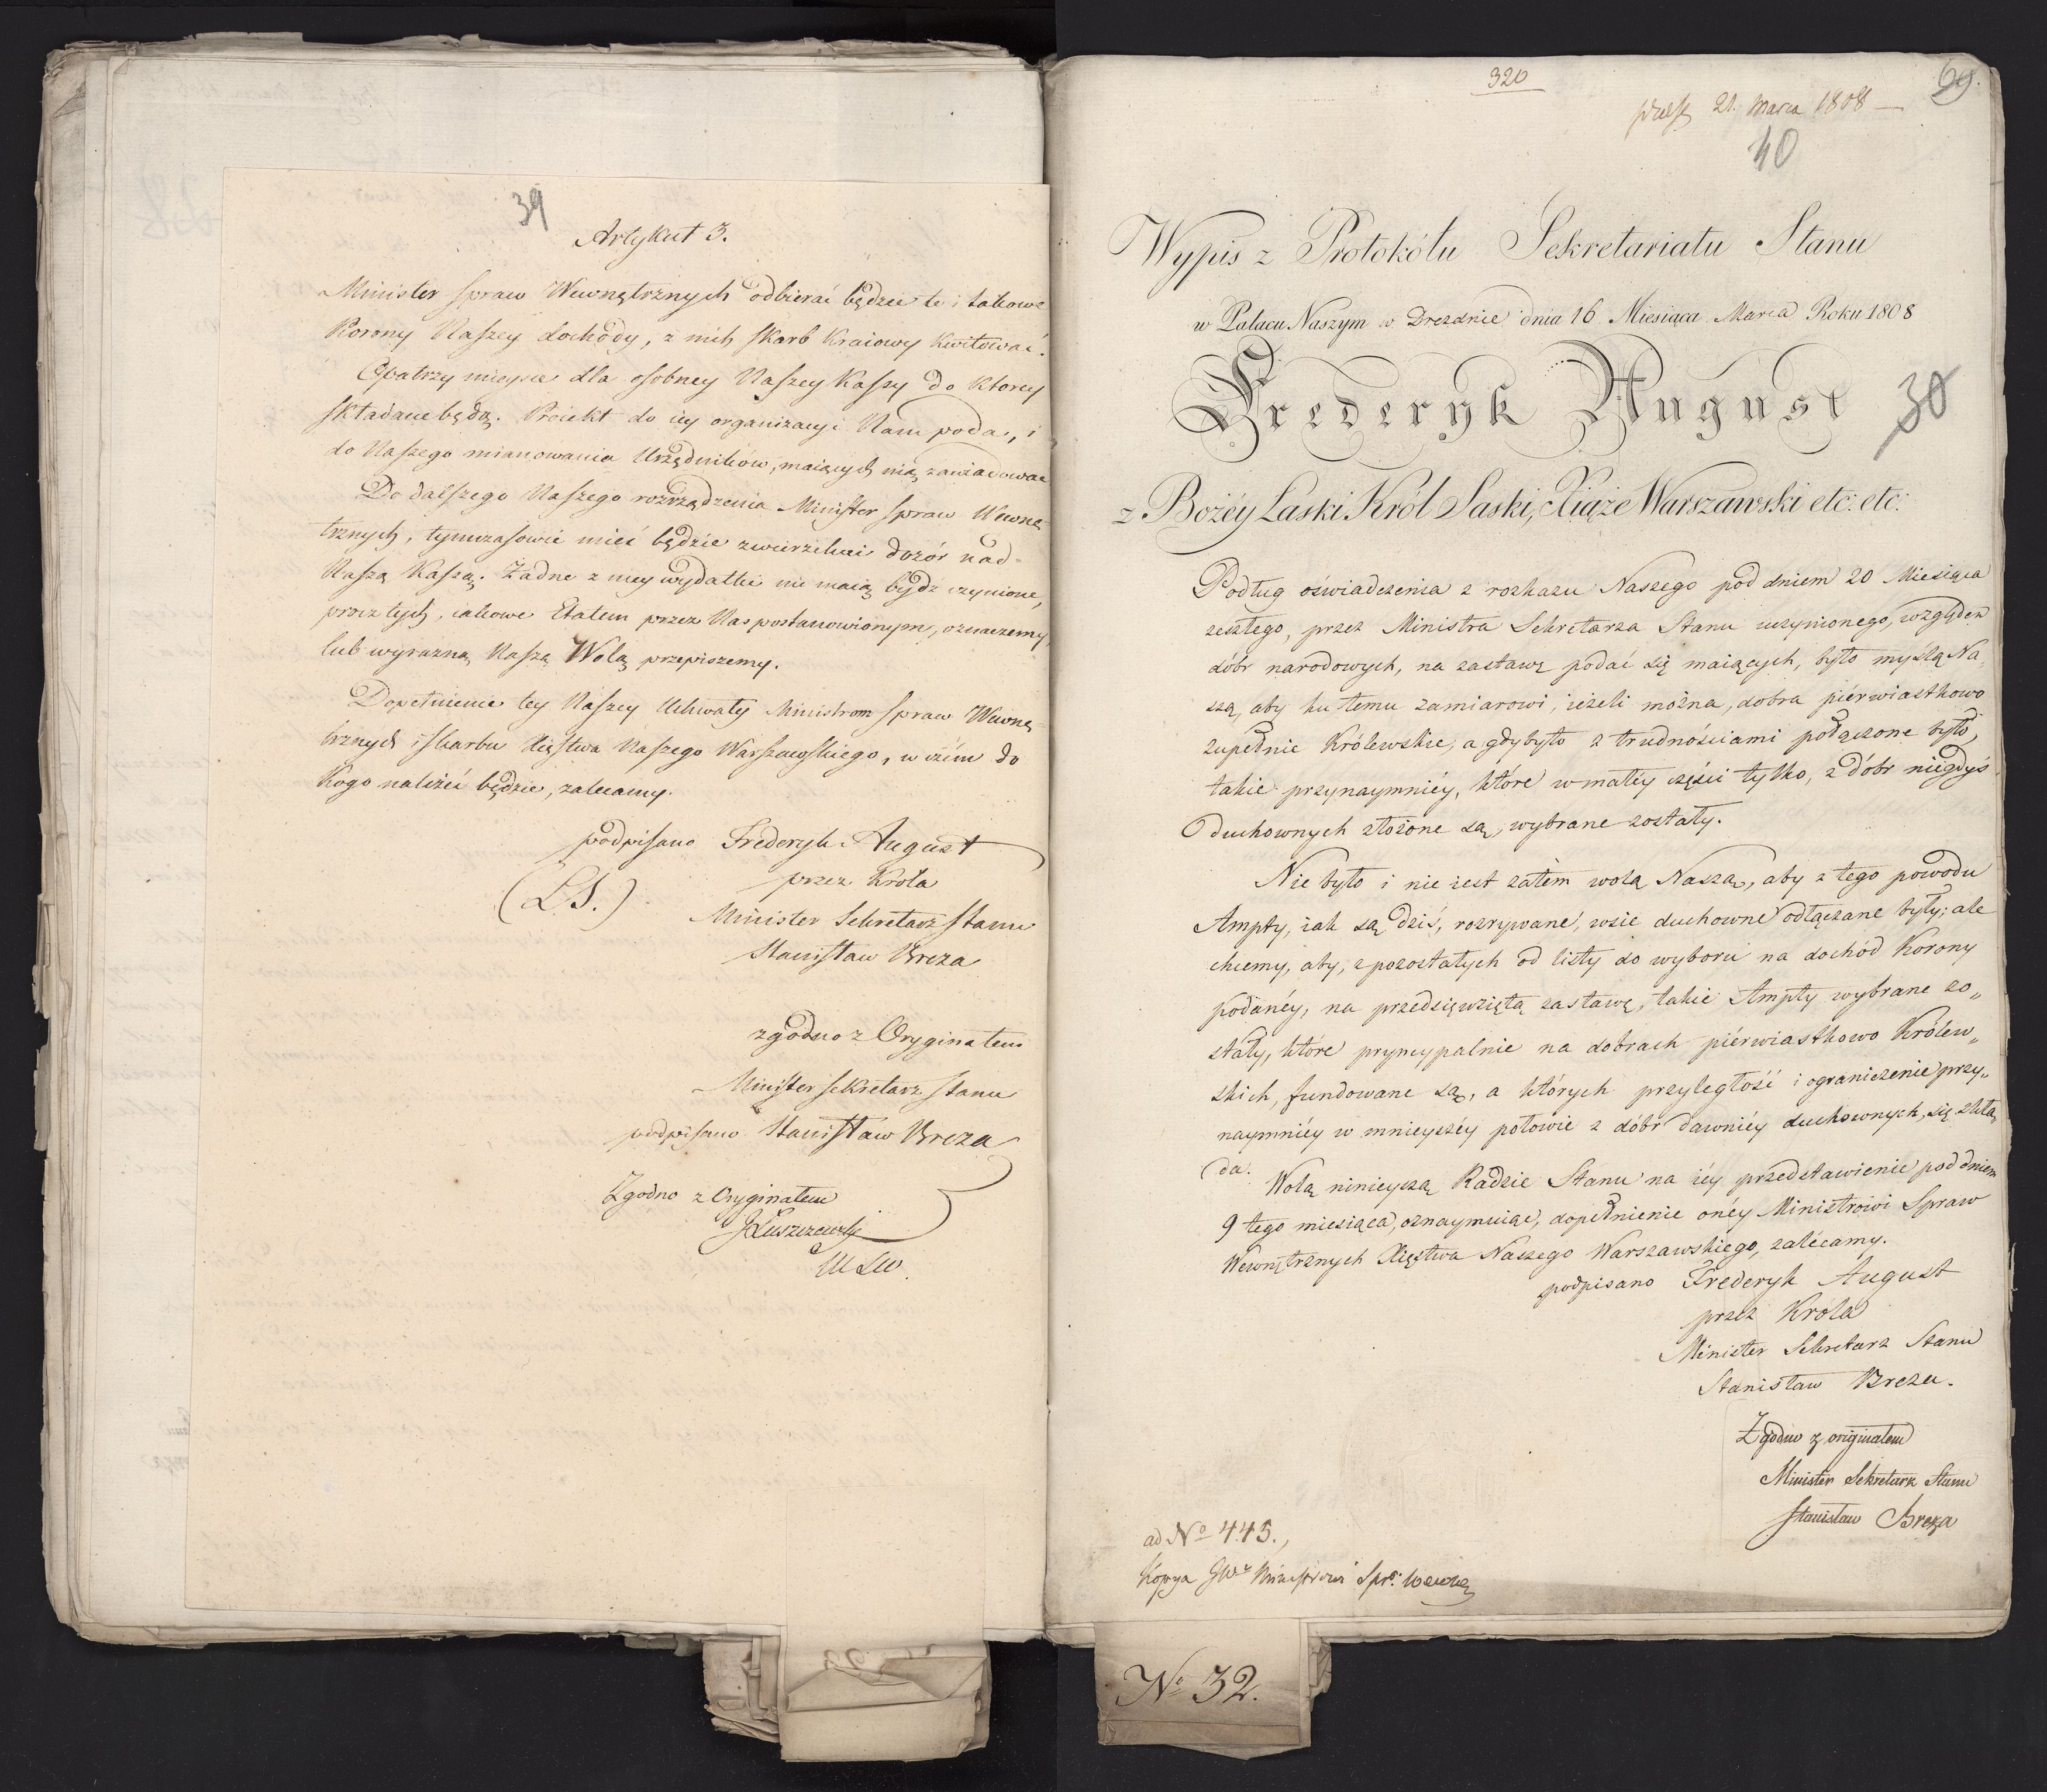 39
Artykuł 3.
Minister spraw Wewnętrznych odbierać będzie te i takowe
Korony Naszey dochody, z nich skarb Kraiowy kwitować.
Opatrzy mieysce dla osobney Naszey Kassy do ktorey
składane będą. Proiekt do iey organizacyi Nam poda, i
do Naszego mianowania Urzędników, maiących nią zawiadować
Do dalszego Naszego rozrządzenia Minister spraw Wewnę-
trznych, tymczasowie mieć będzie zwierzchni dozór nad
Naszą Kassą. Żadne z niey wydatki nie maią bydź czynione,
procz tych, iakowe Etatem przez Nas postanowionym, oznaczemy,
lub wyrazną Naszą Wolą przepiszemy.
Dopełnienie tey Naszey Uchwały Ministrom spraw Wewnę-
trznych i skarbu Xięstwa Naszego Warszawskiego, w czém do
Kogo należéć będzie, zalecamy.
podpisano Frederyk August
przez Krola
(L.S.)
Minister Sekretarz Stanu
Stanisław Breza
zgodno z Oryginałem
Minister Sekretarz Stanu
podpisano Stanisław Breza
Zgodno z Oryginałem
JŁuszczewski
320
69.
21. Marca 1808 —
40
Wypis z Protokółu Sekretariatu Stanu
w Pałacu Naszym w Dreznie dnia 16 Miesiąca Marca Roku 1808
Frederyk August
30
z Bożéy Łaski Król Saski, Xiąże Warszawski etc: etc:
Podług oświadczenia z rozkazu Naszego pod dniem 20 Miesiąca
zeszłego, przez Ministra Sekretarza Stanu uczynionego, względem
dóbr narodowych, na zastawę podać się maiących, było myślą Na-
szą, aby ku temu zamiarowi, ieżeli można, dobra piérwiastkowo
zupełnie Królewskie, a gdyby to z trudnościami połączone było,
takie przynaymniéy, które w małéy części tylko, z dóbr niegdyś
duchownych złożone są, wybrane zostały.
Nie było i nie iest zatém wolą Naszą, aby z tego powodu
Ampty, iak są dziś, rozrywane, wsie duchowne odłączane były; ale
chcemy, aby, z pozostałych od listy do wyboru na dochód Korony
podanéy, na przedsięwziętą zastawę, takie Ampty wybrane zo„
stały, które pryncypalnie na dobrach piérwiastkowo Królew„
skich, fundowane są, a których przyległość i ograniczenie przy„
naymniéy w mnieyszéy połowie z dóbr dawniéy duchownych, się skła„
da.
Wolą ninieyszą Radzie Stanu na iéy przedstawienie pod dniem
9 tego miesiąca, oznaymuiąc, dopełnienie onéy Ministrowi Spraw
Wewnętrznych Xięstwa Naszego Warszawskiego, zalécamy.
podpisano Frederyk August
przez Króla
Minister Sekretarz Stanu
Stanisław Breza.
Zgodno z originałem
Minister Sekretarz Stanu
Stanisław Breza
ad No 445.,
Kopya Ministrowi Spr: Wewnę
No 32.